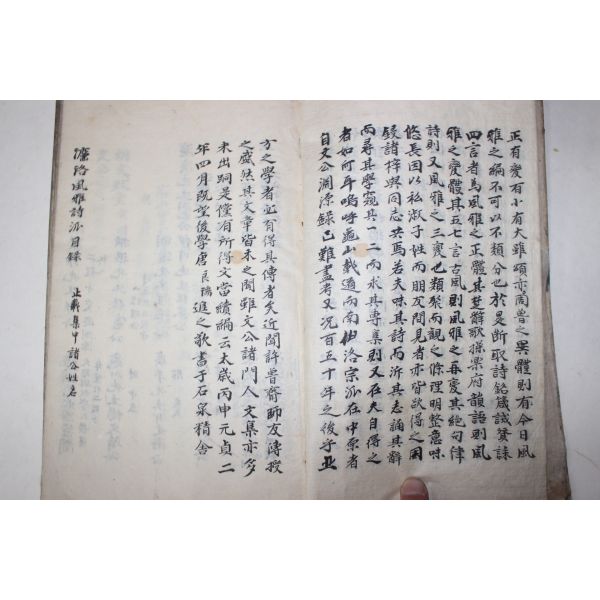 正有變有小有大雖頌亦商魯之異體則有今日風
雅之編不可以不類分也於是斷取詩銘箴誡贊誄
四言者爲風雅之正體其楚辭歌操樂府韻語則風
雅之變體其五七言古風則風雅之再變其絶句律
詩則又風雅之三變也類聚而觀之條理明整意味
悠長因以私淑子姓而朋友間見者亦皆欲得之因
鋟諸梓與同志共焉若夫味其詩而泝其志誦其辭
而尋其學窺其一二而求其專集則又在夫自得之
者如何耳嗚呼龜山載道而南伊洛宗派在中原者
自文公淵源錄已難盡考又況百五十年之後乎北
方之學者必有得其傳者矣近聞許魯齋師友傳授
之盛然其文章皆未之聞雖文公諸門人文集亦多
未出詞是僅有所得文當續編云太歲丙申元貞二
年四月旣望後學唐良瑞進之敬書于石泉精舍
濂洛風雅詩派目錄 止載集中諸公姓名